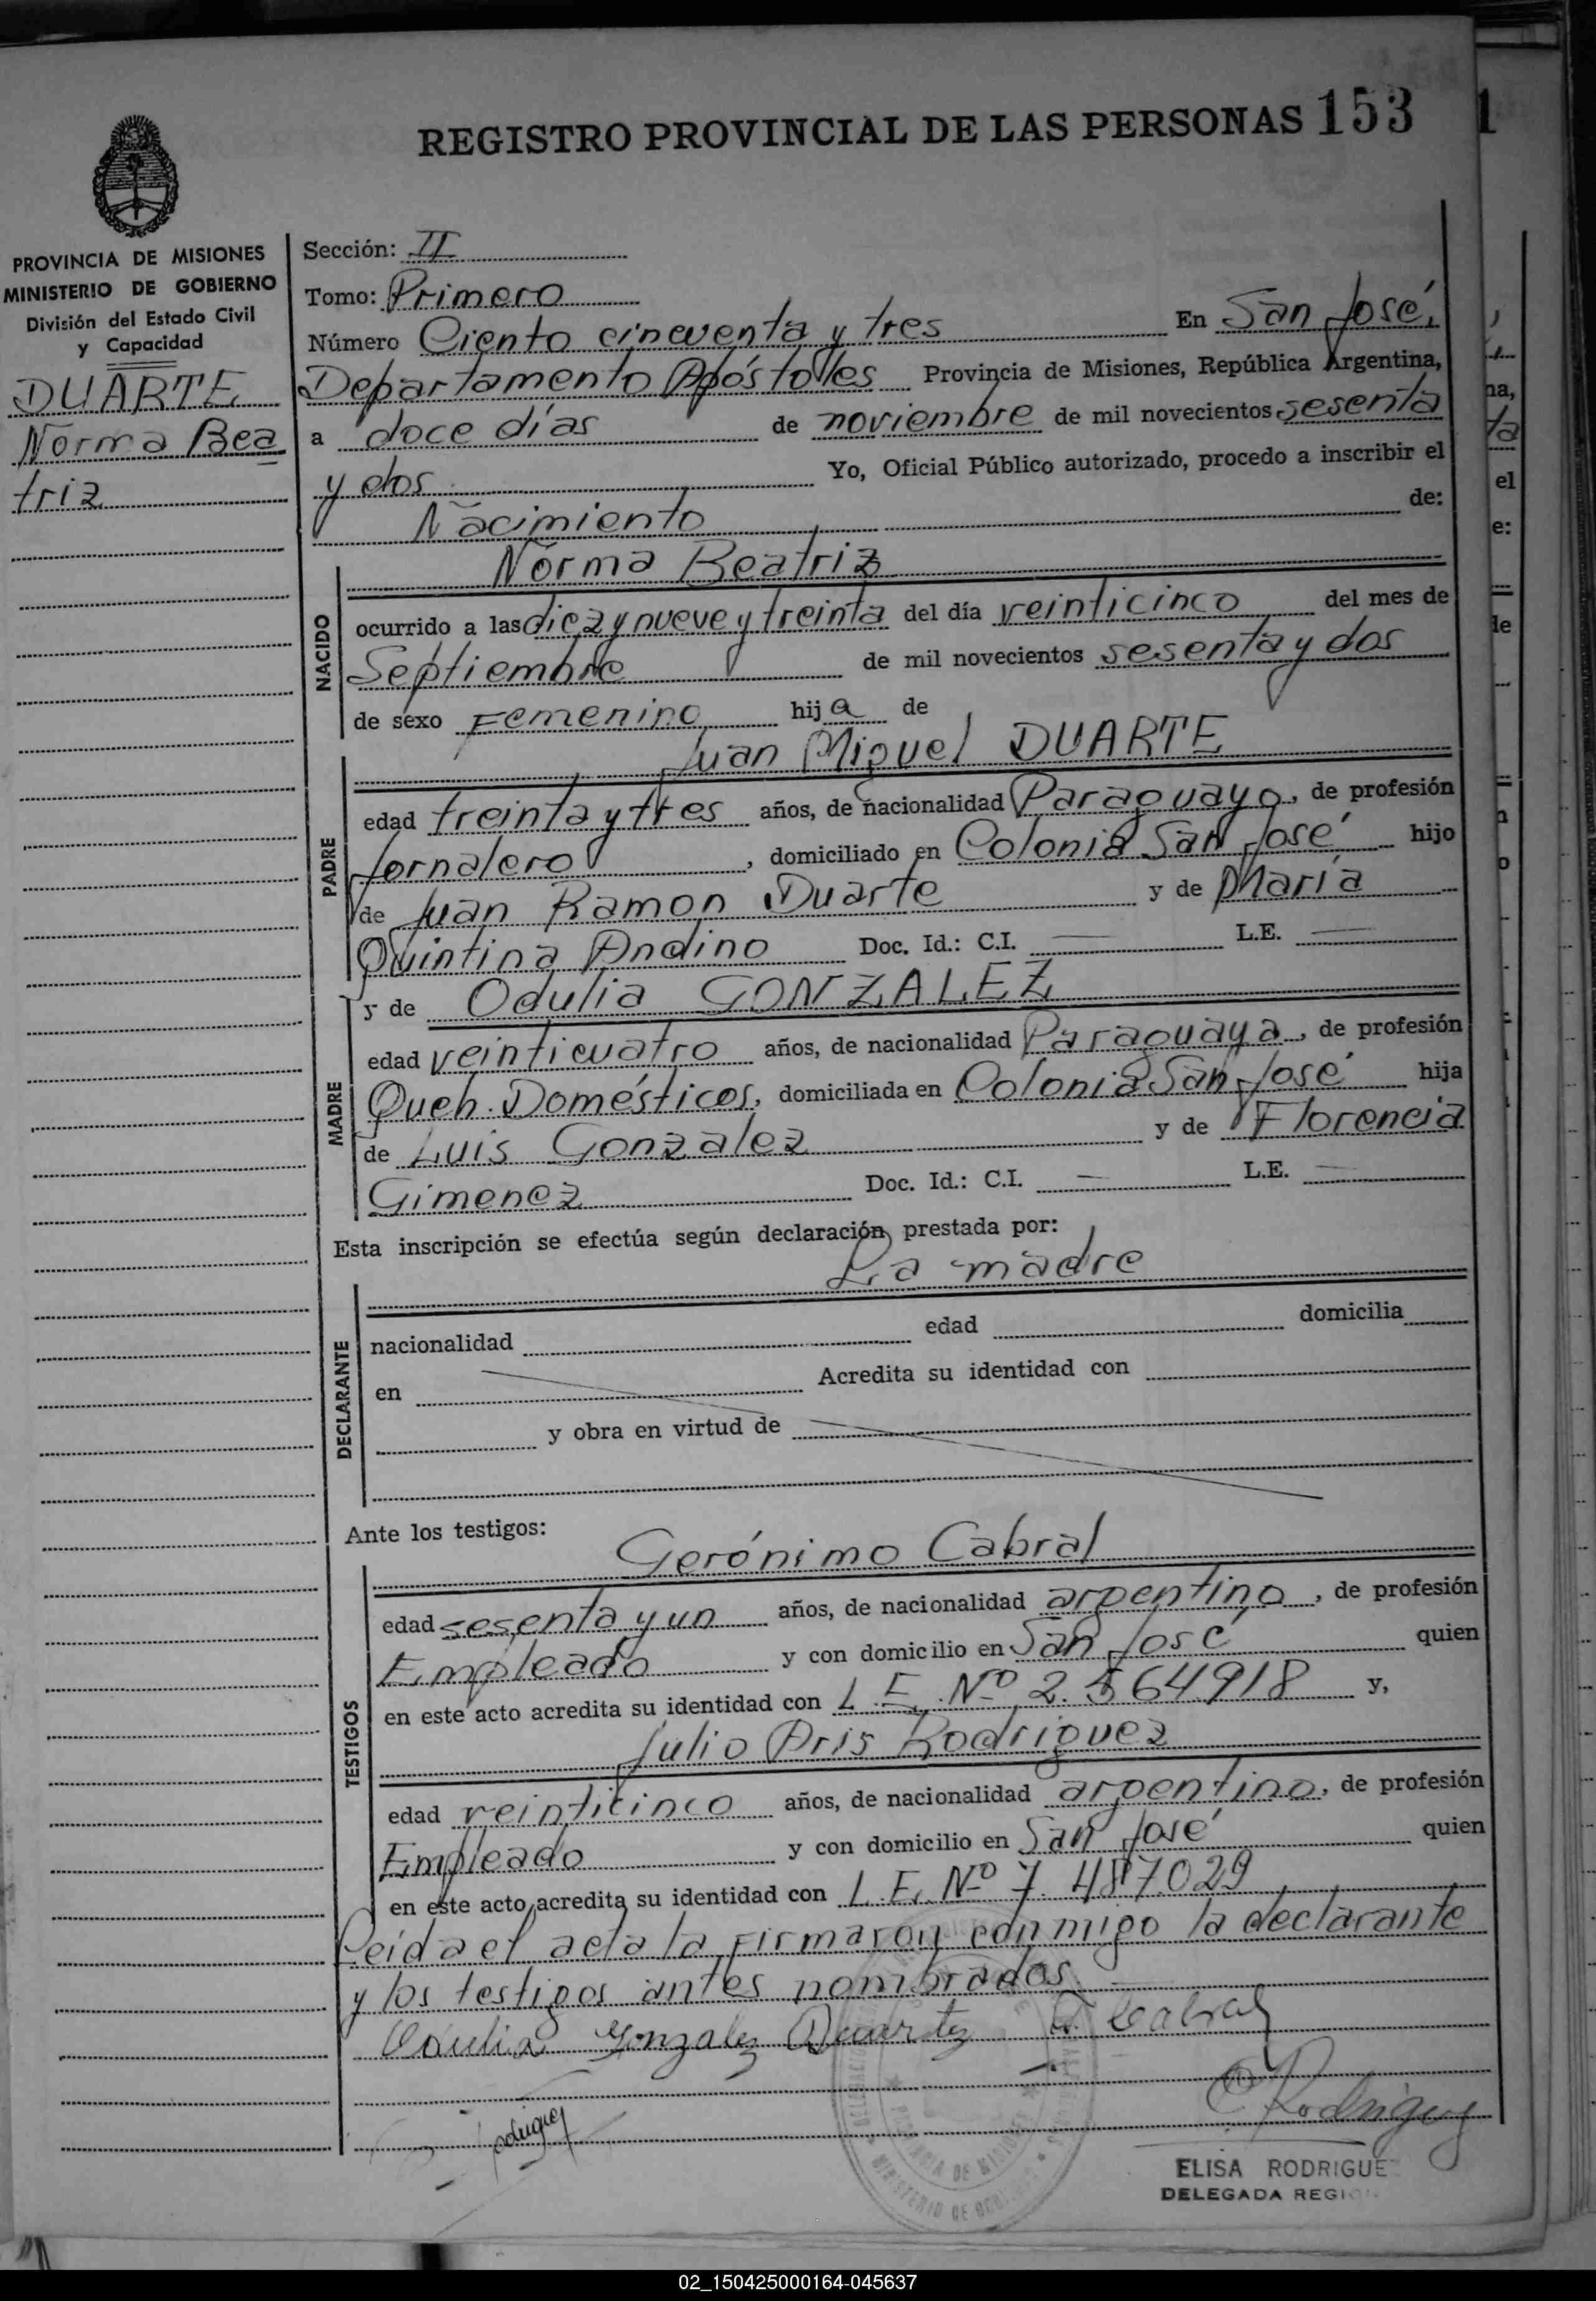 REGISTRO PROVINCIAL DE LAS PERSONAS 153
PROVINCIA DE MISIONES
MINISTERIO DE GOBIERNO
División del Estado Civil
y Capacidad
DUARTE
Norma Bea
triz
Sección: II
Tomo: Primero
Número Ciento cincuenta y tres En San José,
Departamento Apóstoles Provincia de Misiones, República Argentina,
a doce días de noviembre de mil novecientos sesenta
y dos Yo, Oficial Público autorizado, procedo a inscribir el
Nacimiento de:
Norma Beatriz
NACIDO
ocurrido a las diez y nueve y treinta del día veinticinco del mes de
Septiembre de mil novecientos sesenta y dos
de sexo Femenino hija de
Juan Miguel DUARTE
PADRE
edad treinta y tres años, de nacionalidad Paraguayo, de profesión
Jornalero, domiciliado en Colonia San José hijo
de Juan Ramon Duarte y de María
Quintina Andino Doc. Id.: C.I. — L.E. —
y de Odulia GONZALEZ
MADRE
edad veinticuatro años, de nacionalidad Paraguaya, de profesión
Queh. Domésticos, domiciliada en Colonia San José hija
de Luis Gonzalez y de Florencia
Gimenez Doc. Id.: C.I. — L.E. —
Esta inscripción se efectúa según declaración prestada por:
La madre
DECLARANTE
nacionalidad edad domicilia
en Acredita su identidad con
y obra en virtud de
Ante los testigos:
Gerónimo Cabral
TESTIGOS
edad sesenta y un años, de nacionalidad argentino, de profesión
Empleado y con domicilio en San José quien
en este acto acredita su identidad con L.E. Nº 2.564.918 y,
Julio Aris Rodriguez
edad veinticinco años, de nacionalidad argentino, de profesión
Empleado y con domicilio en San José quien
en este acto acredita su identidad con L.E. Nº 7.487.029
Leída el acta la firmaron conmigo la declarante
y los testigos antes nombrados.
Odulia Gonzalez Duarte G. Cabral
Rodriguez
ELISA RODRIGUE
DELEGADA REGI
02_150425000164-045637